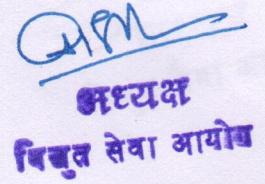 अध्यक्ष
विद्युत सेवा आयोग